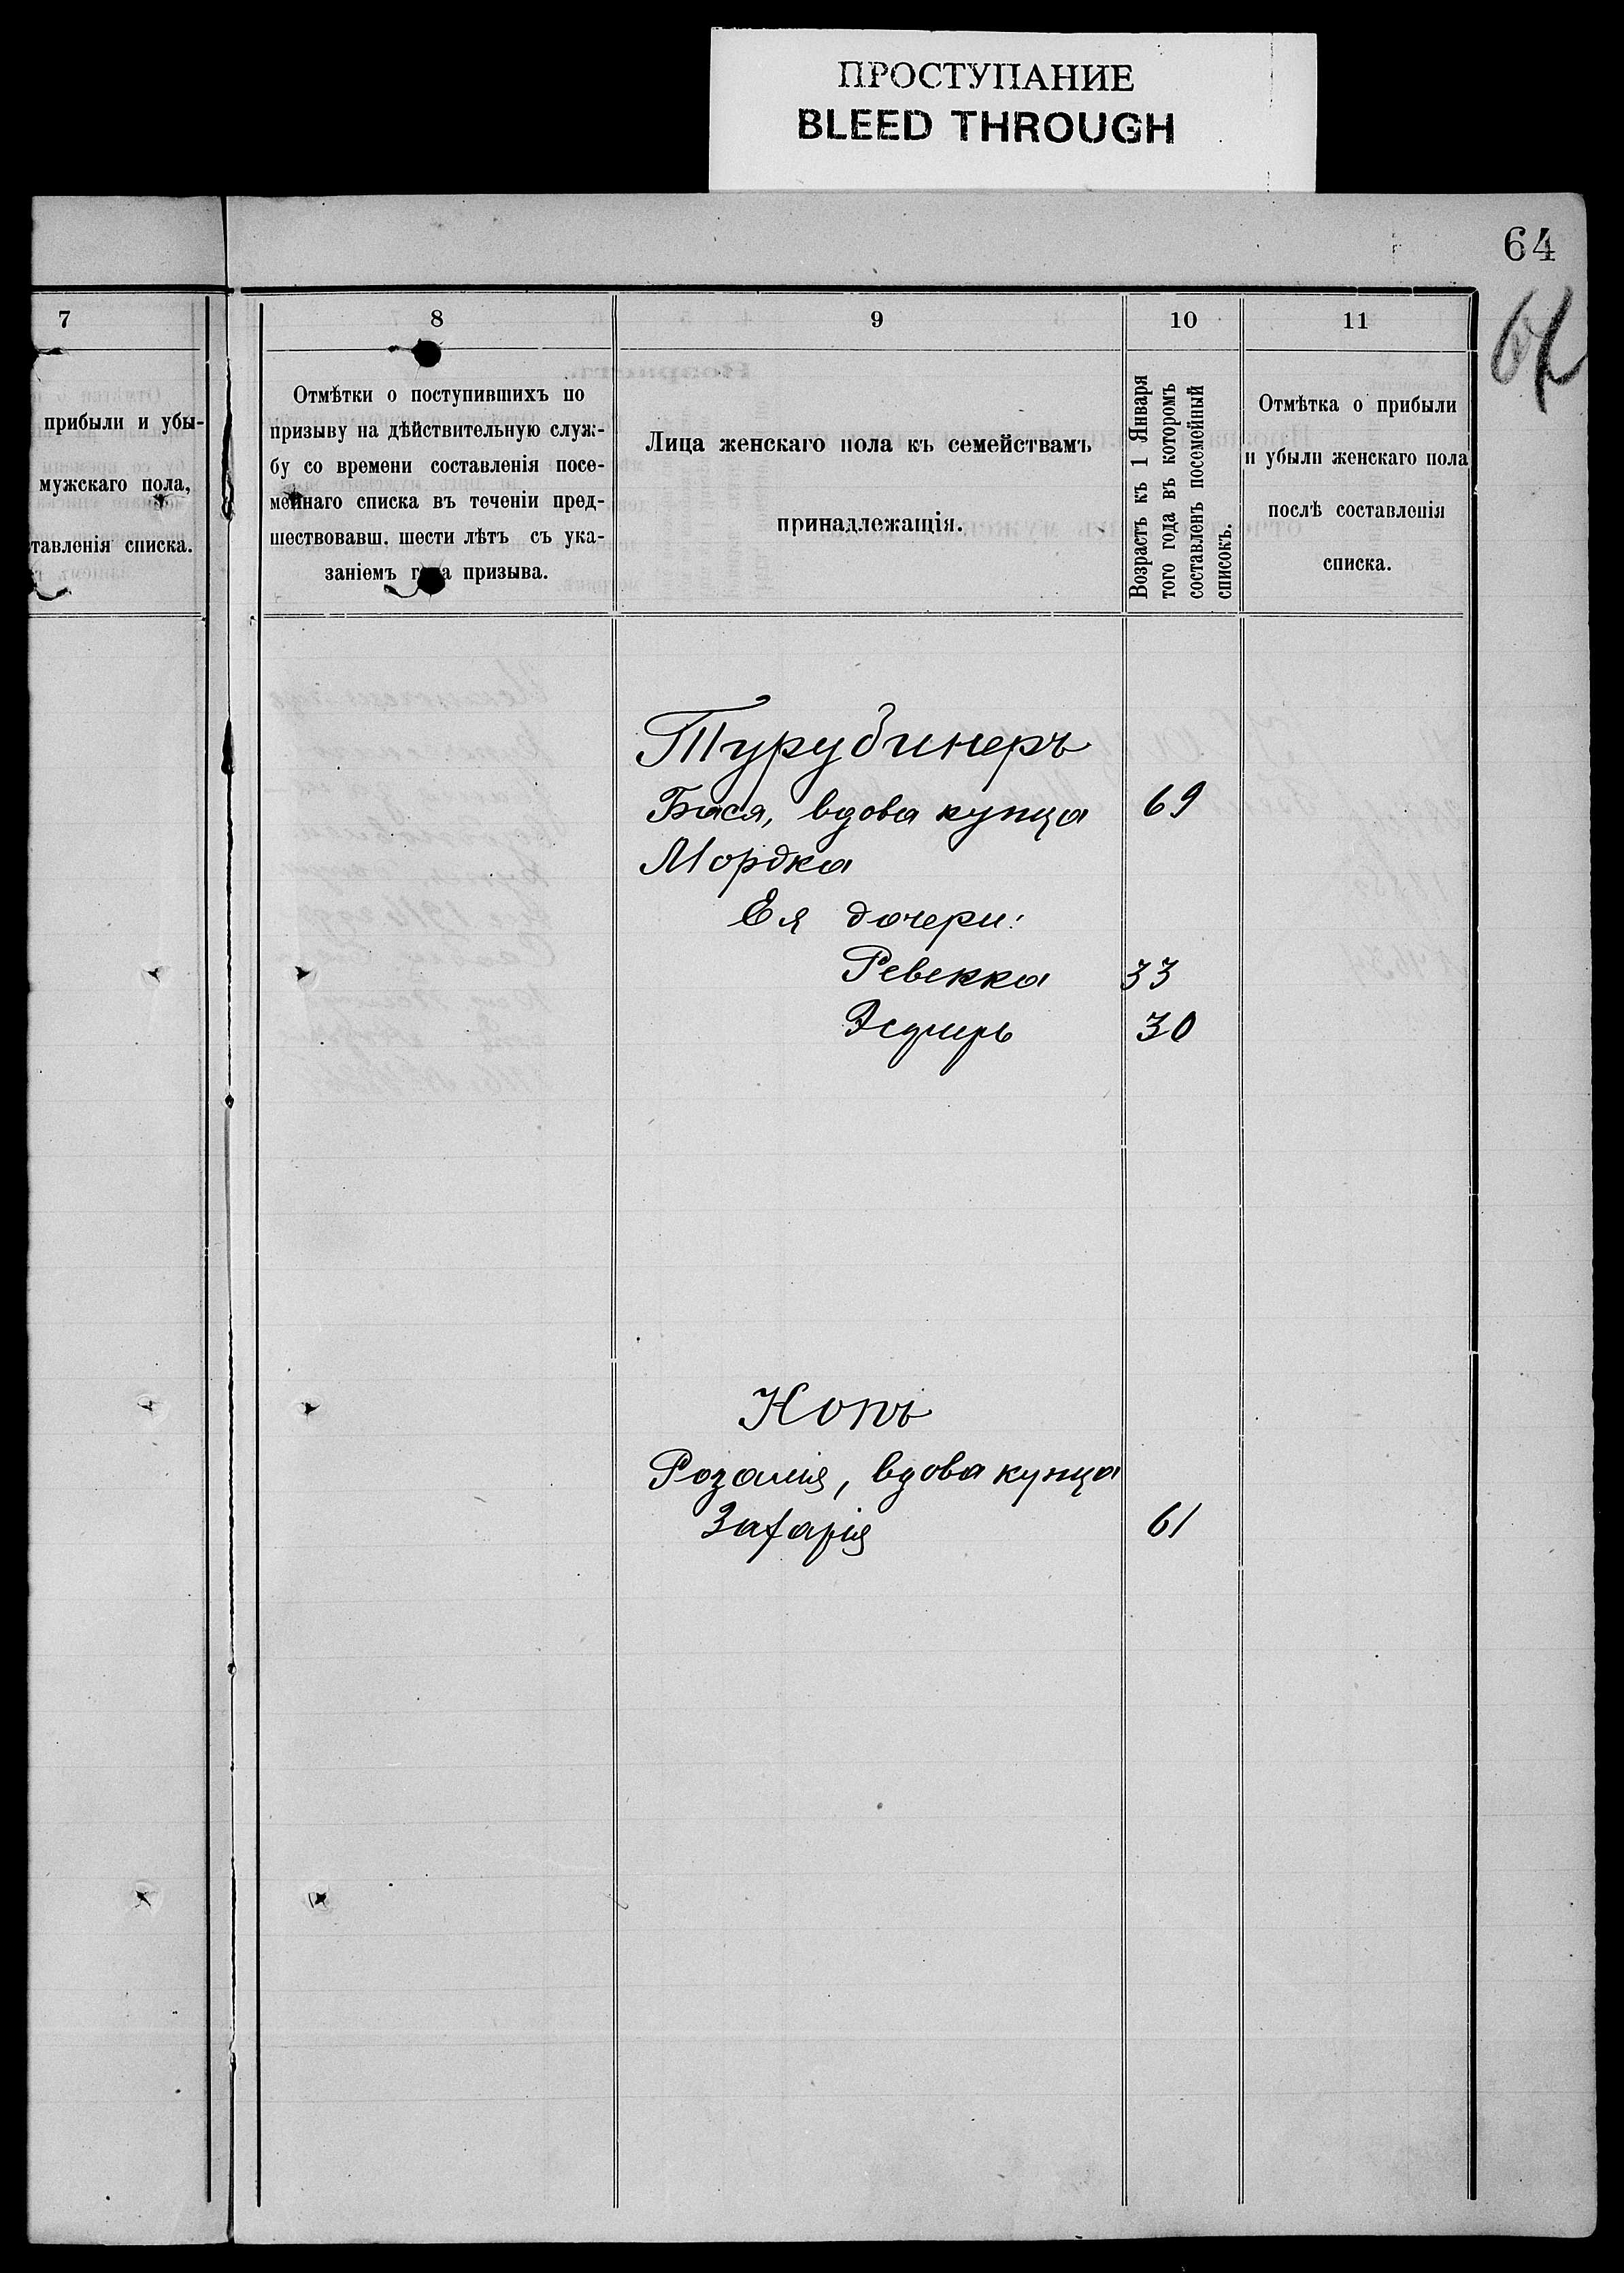 ПРОСТУПАНИЕ
BLEED THROUGH
64
7
прибыли и убы-
мужскаго пола,
тавленія списка.
8
Отмѣтки о поступившихъ по
призыву на дѣйствительную служ-
бу со времени составленія посе-
мейнаго списка въ теченіи пред-
шествовавш. шести лѣтъ съ ука-
заніемъ года призыва.
9
Лица женскаго пола къ семействамъ
принадлежащія.
10
Возрастъ къ 1 Января
того года въ которомъ
составленъ посемейный
списокъ.
11
Отмѣтка о прибыли
и убыли женскаго пола
послѣ составленія
списка.
Турубинеръ
Бася, вдова купца 69
Мордка
Ея дочери:
Ревекка 33
Эсфирь 30
Копъ
Розалія, вдова купца
Захарія 61